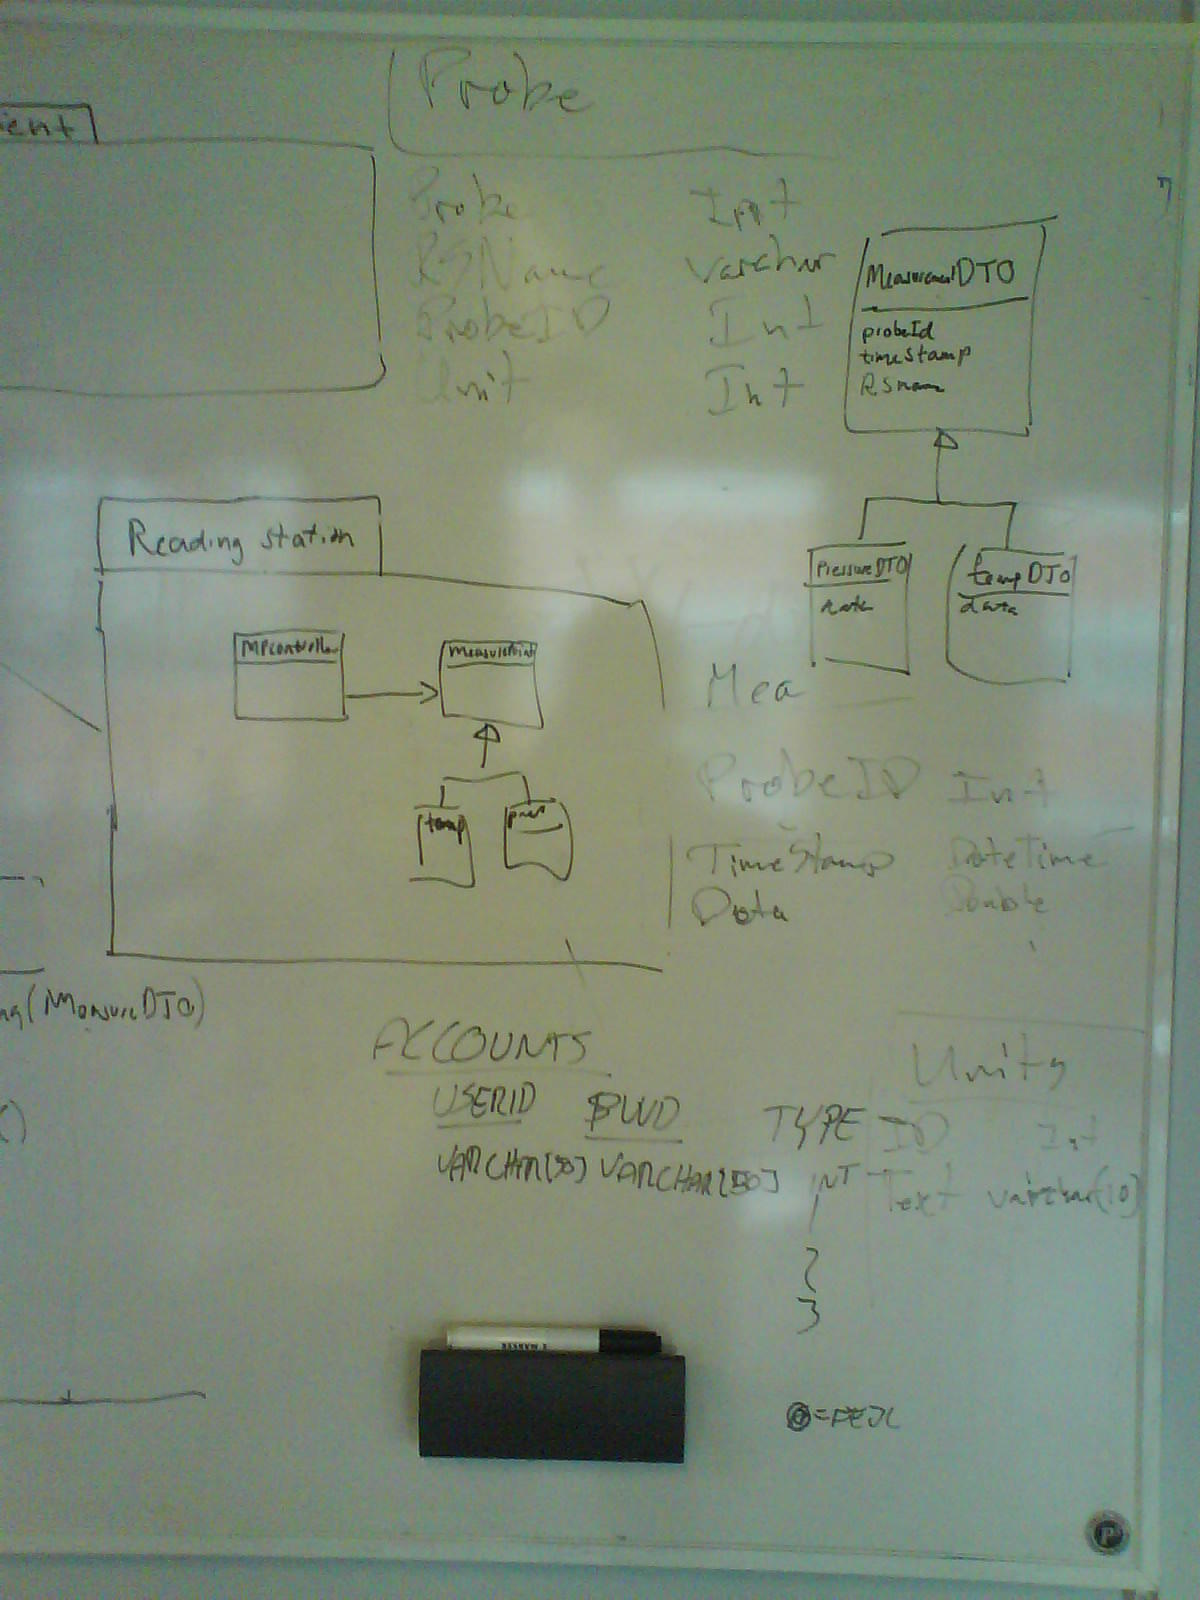 Probe
ent
Probe Int
RSName varchar
ProbeID Int
Unit Int
MeasurementDTO
probeId
timeStamp
RSname
Reading station
PressureDTO
tempDTO
data
MPcontroller
MeasurePoint
temp
Mea
ProbeID Int
TimeStamp DateTime
Data Double
ng(MeasureDTO)
ACCOUNTS
USERID PWD TYPE
VARCHAR[50] VARCHAR[50] INT
1
2
3
Unity
ID Int
Text varchar(10)
P